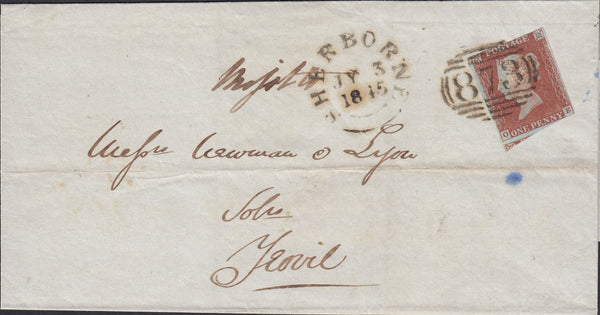 SHERBORNE
JY 3
1845
873
POSTAGE
O ONE PENNY E
Messrs Newman & Lyon
Solrs
Yeovil